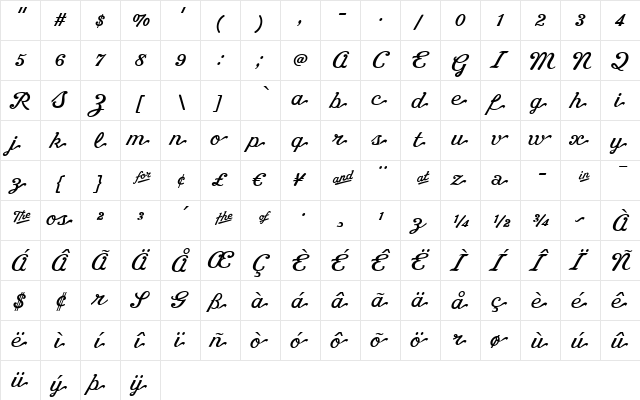 " # $ % ' ( ) , - . / 0 1 2 3 4
5 6 7 8 9 : ; @ A C E G I M N Q
R S Z [ \ ] ` a b c d e f g h i
j k l m n o p q r s t u v w x y
z { } for ¢ £ € ¥ and ¨ at z a - in ¯
The os ² ³ ´ the of · ¸ ¹ z ¼ ½ ¾ ~ À
Á Â Ã Ä Å Œ Ç È É Ê Ë Ì Í Î Ï Ñ
$ ¢ r S G ß à á â ã ä å ç è é ê
ë ì í î ï ñ ò ó ô õ ö r ø ù ú û
ü ý þ ÿ